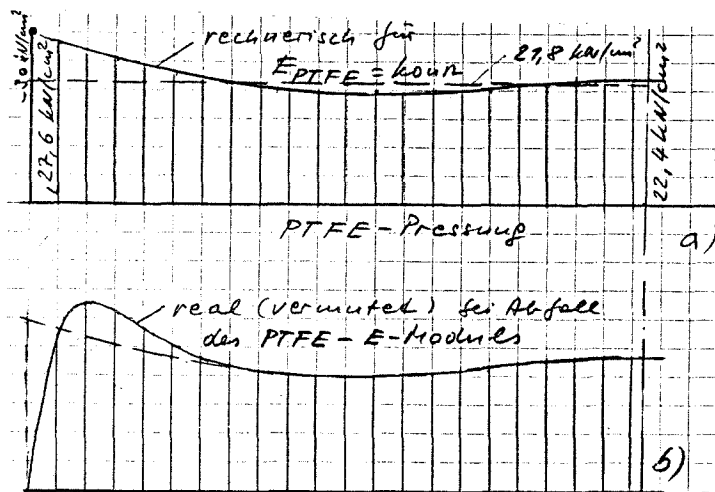 ~30 kN/cm²
27,6 kN/cm²
rechnerisch für
E PTFE = konst
21,8 kN/cm²
22,4 kN/cm²
PTFE-Pressung
a)
real (vermutet) bei Abfall
des PTFE-E-Moduls
b)